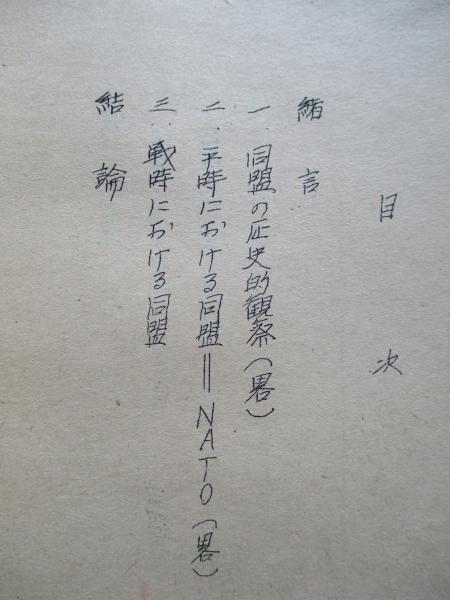 目次
緒言
一、同盟の歴史的観察(畧)
二、平時における同盟=NATO(畧)
三、戦時における同盟
結論